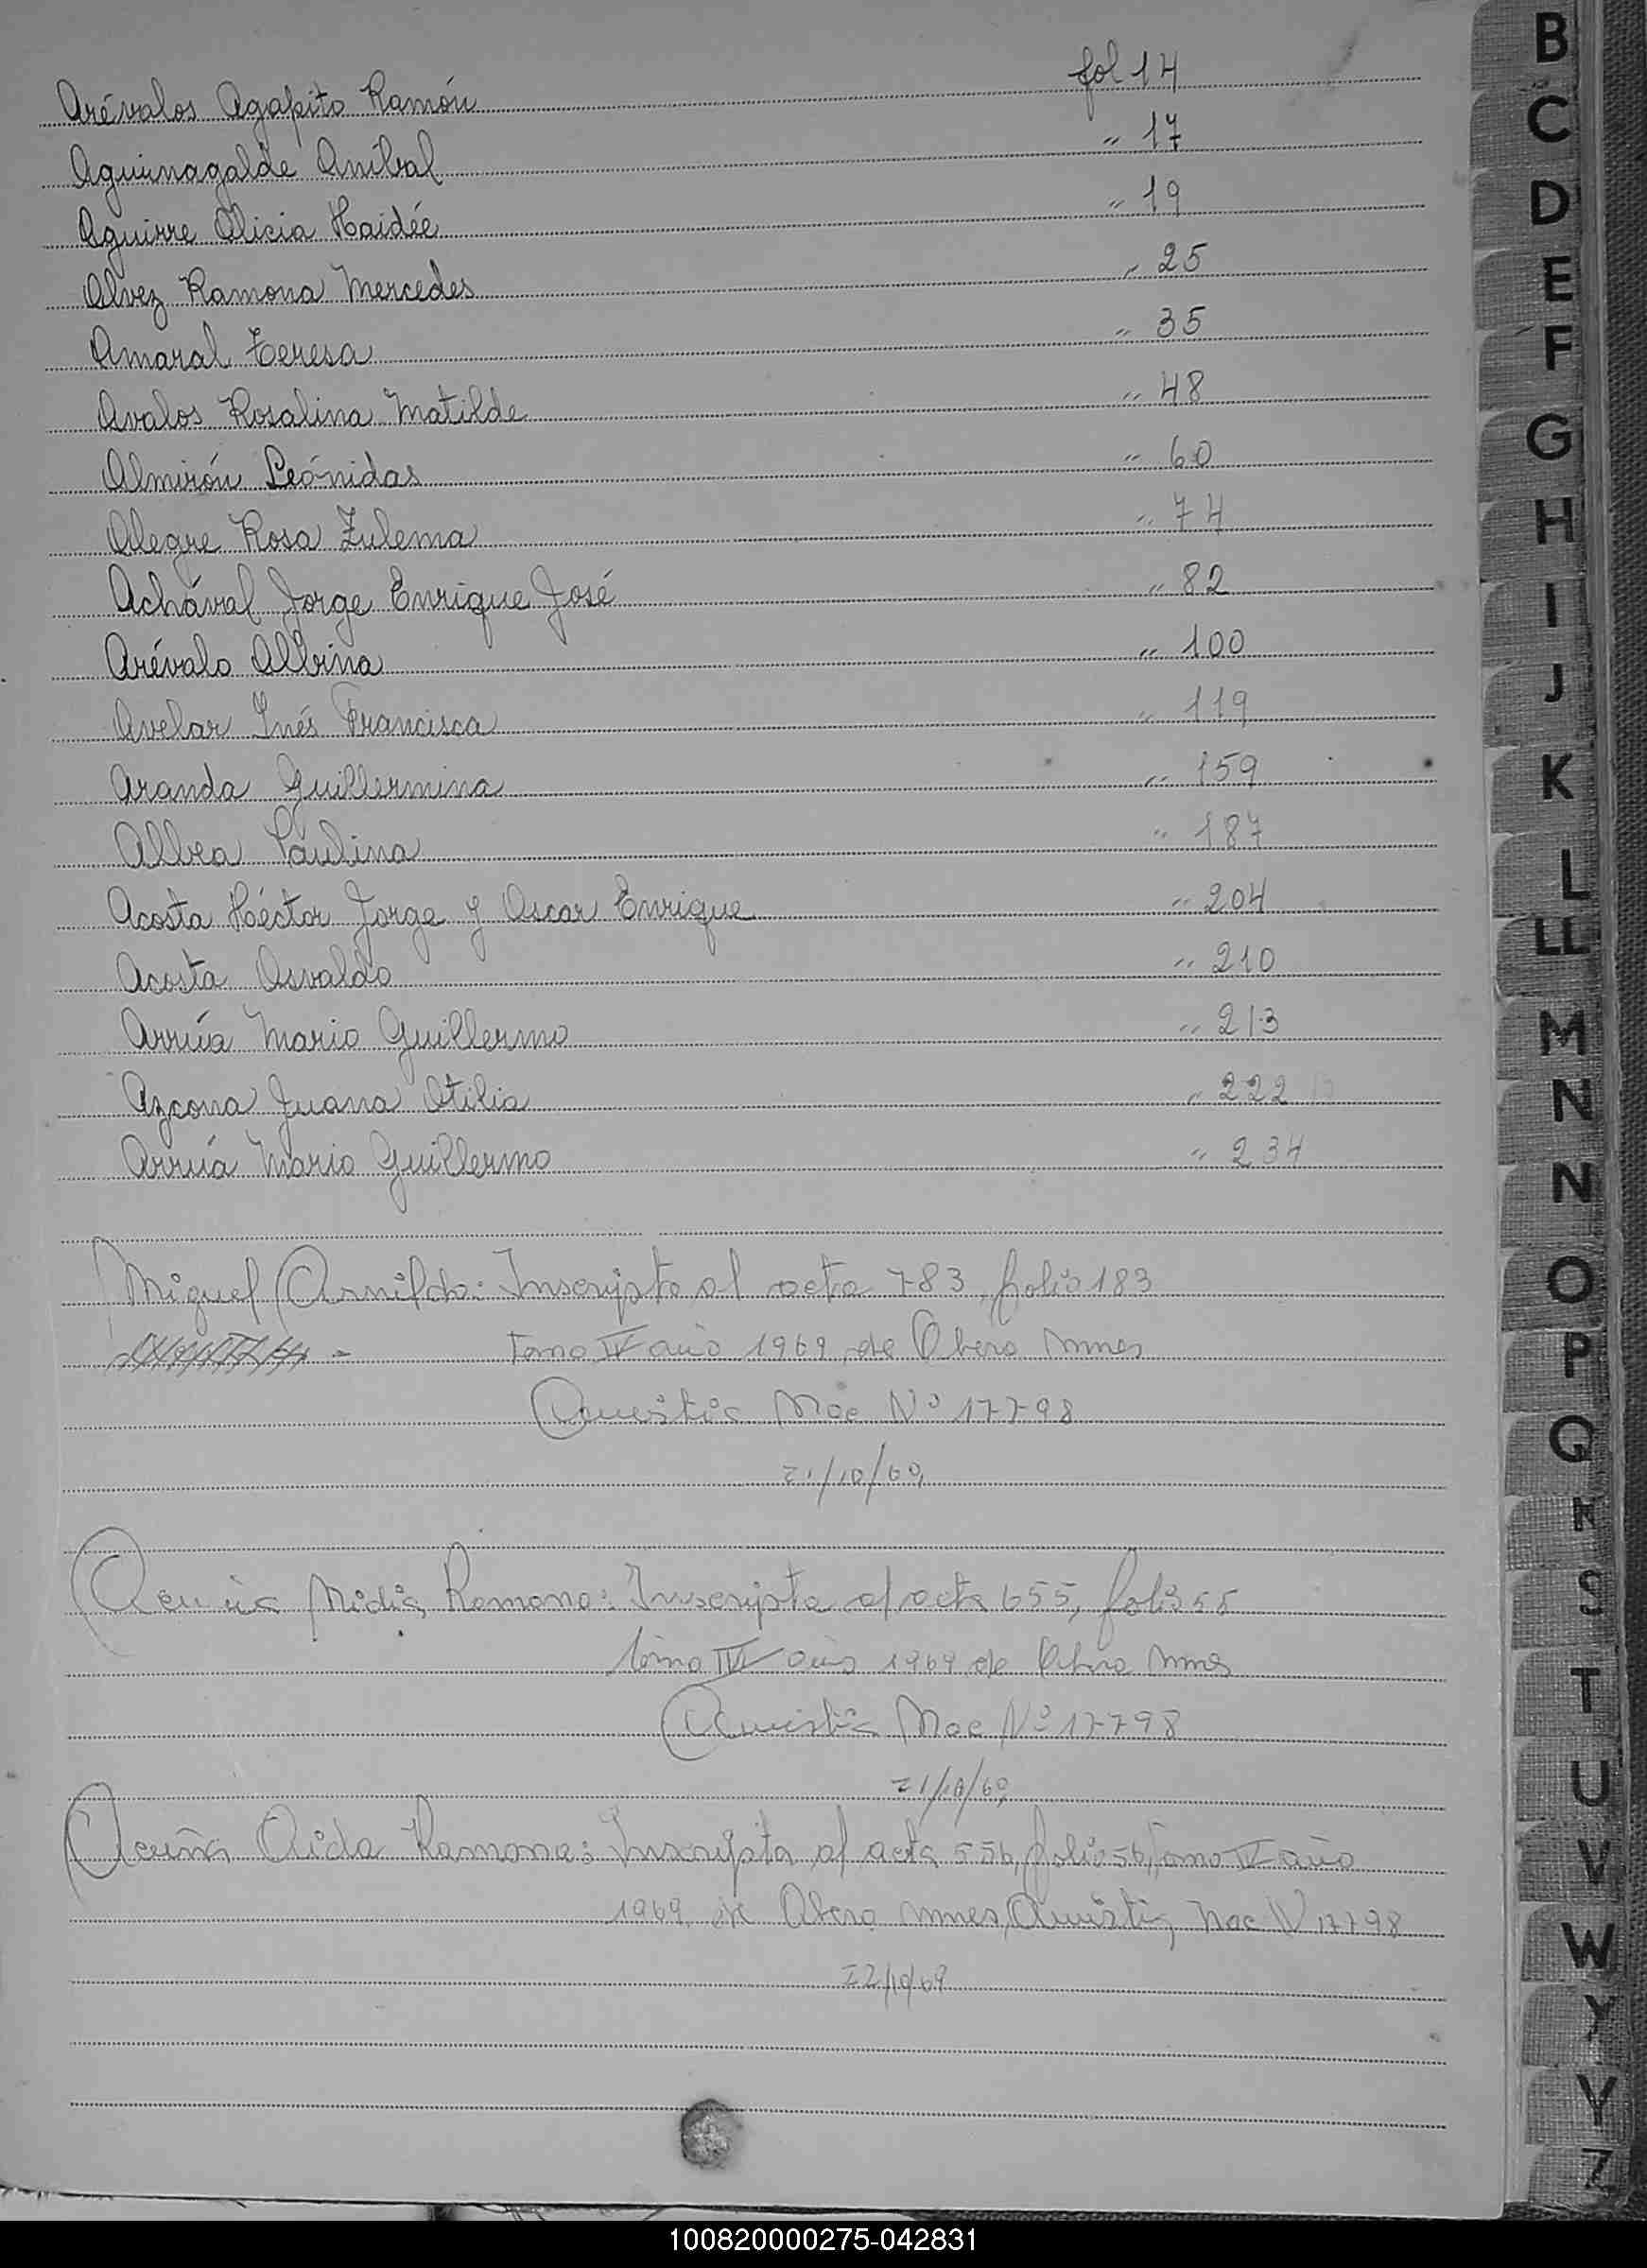 Arévalos Agapito Ramón fol 14
Aguinagalde Aníbal " 17
Aguirre Alicia Haidée " 19
Alvez Ramona Mercedes " 25
Amaral Teresa " 35
Avalos Rosalina Matilde " 48
Almirón Leónidas " 60
Alegre Rosa Zulema " 74
Achával Jorge Enrique José " 82
Arévalo Albina " 100
Avelar Inés Francisca " 119
Aranda Guillermina " 159
Albea Paulina " 187
Acosta Héctor Jorge y Oscar Enrique " 204
Acosta Osvaldo " 210
Arrúa Mario Guillermo " 213
Azcona Juana Otilia " 222
Arrúa Mario Guillermo " 234
Miguel Arnildo: Inscripto al acta 783, folio 183
Tomo IV año 1969, de Obera Mnes
Amistia Nac Nº 17798
21/10/69
Acuña Ramona: Inscripta al acta 655, folio 55
Tomo IV año 1969 de Obera Mnes
Amistia Nac Nº 17798
21/10/69
Acuña Aida Ramona: Inscripta al acta 556, folio 56, Tomo IV año
1969, de Obera Mnes, Amistia Nac Nº 17798
22/10/69
B
C
D
E
F
G
H
I
J
K
L
LL
M
N
N
O
P
Q
R
S
T
U
V
W
Y
Z
100820000275-042831